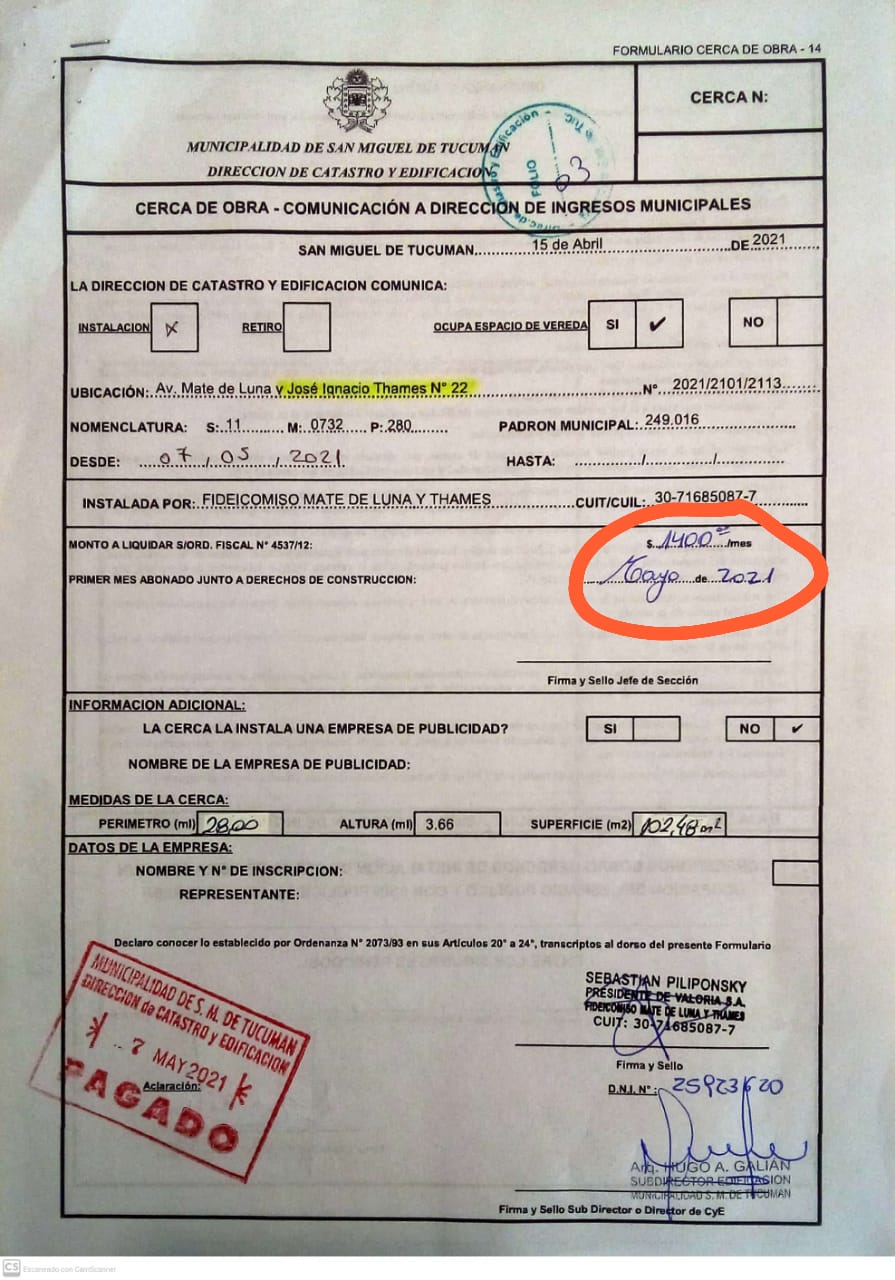 FORMULARIO CERCA DE OBRA - 14
CERCA N:
MUNICIPALIDAD DE SAN MIGUEL DE TUCUMAN
DIRECCION DE CATASTRO Y EDIFICACION
FOLIO 63
CERCA DE OBRA - COMUNICACIÓN A DIRECCIÓN DE INGRESOS MUNICIPALES
SAN MIGUEL DE TUCUMAN, 15 de Abril DE 2021
LA DIRECCION DE CATASTRO Y EDIFICACION COMUNICA:
INSTALACION X RETIRO OCUPA ESPACIO DE VEREDA SI ✔ NO
UBICACIÓN: Av. Mate de Luna y José Ignacio Thames N° 22 N° 2021/2101/2113
NOMENCLATURA: S: 11 M: 0732 P: 280 PADRON MUNICIPAL: 249.016
DESDE: 07/05/2021 HASTA: / /
INSTALADA POR: FIDEICOMISO MATE DE LUNA Y THAMES CUIT/CUIL: 30-71685087-7
MONTO A LIQUIDAR S/ORD. FISCAL N° 4537/12: $ 1400 /mes
PRIMER MES ABONADO JUNTO A DERECHOS DE CONSTRUCCION: Mayo de 2021
Firma y Sello Jefe de Sección
INFORMACION ADICIONAL:
LA CERCA LA INSTALA UNA EMPRESA DE PUBLICIDAD? SI NO ✔
NOMBRE DE LA EMPRESA DE PUBLICIDAD:
MEDIDAS DE LA CERCA:
PERIMETRO (ml) 28,00 ALTURA (ml) 3.66 SUPERFICIE (m2) 102,48 m2
DATOS DE LA EMPRESA:
NOMBRE Y N° DE INSCRIPCION:
REPRESENTANTE:
Declaro conocer lo establecido por Ordenanza N° 2073/93 en sus Artículos 20° a 24°, transcriptos al dorso del presente Formulario
MUNICIPALIDAD DE S. M. DE TUCUMAN
DIRECCION de CATASTRO y EDIFICACION
7 MAY 2021
PAGADO
Aclaración:
SEBASTIAN PILIPONSKY
PRESIDENTE DE VALORIA S.A.
FIDEICOMISO MATE DE LUNA Y THAMES
CUIT: 30-71685087-7
Firma y Sello
D.N.I. N°: 25923620
Arq. HUGO A. GALIÁN
SUBDIRECTOR EDIFICACION
MUNICIPALIDAD S. M. DE TUCUMAN
Firma y Sello Sub Director o Director de CyE
CS Escaneado con CamScanner